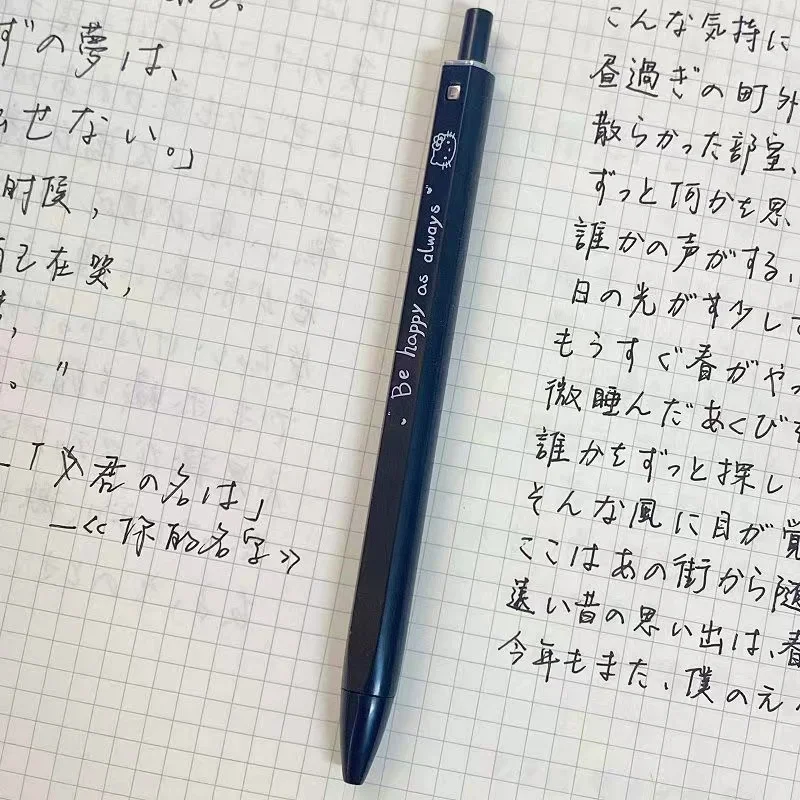 ずの夢は、
せない。」
时候，
自己在哭，
。”
—「君の名は」
—《你的名字》
Be happy as always
こんな気持に
昼過ぎの町外
散らかった部室、
ずっと何かを思
誰かの声がする、
日の光が少して
もうすぐ春がやっ
微睡んだあくびを
誰かをずっと探し
そんな風に目が覚
ここはあの街から随
遠い昔の思い出は、春
今年もまた、僕の